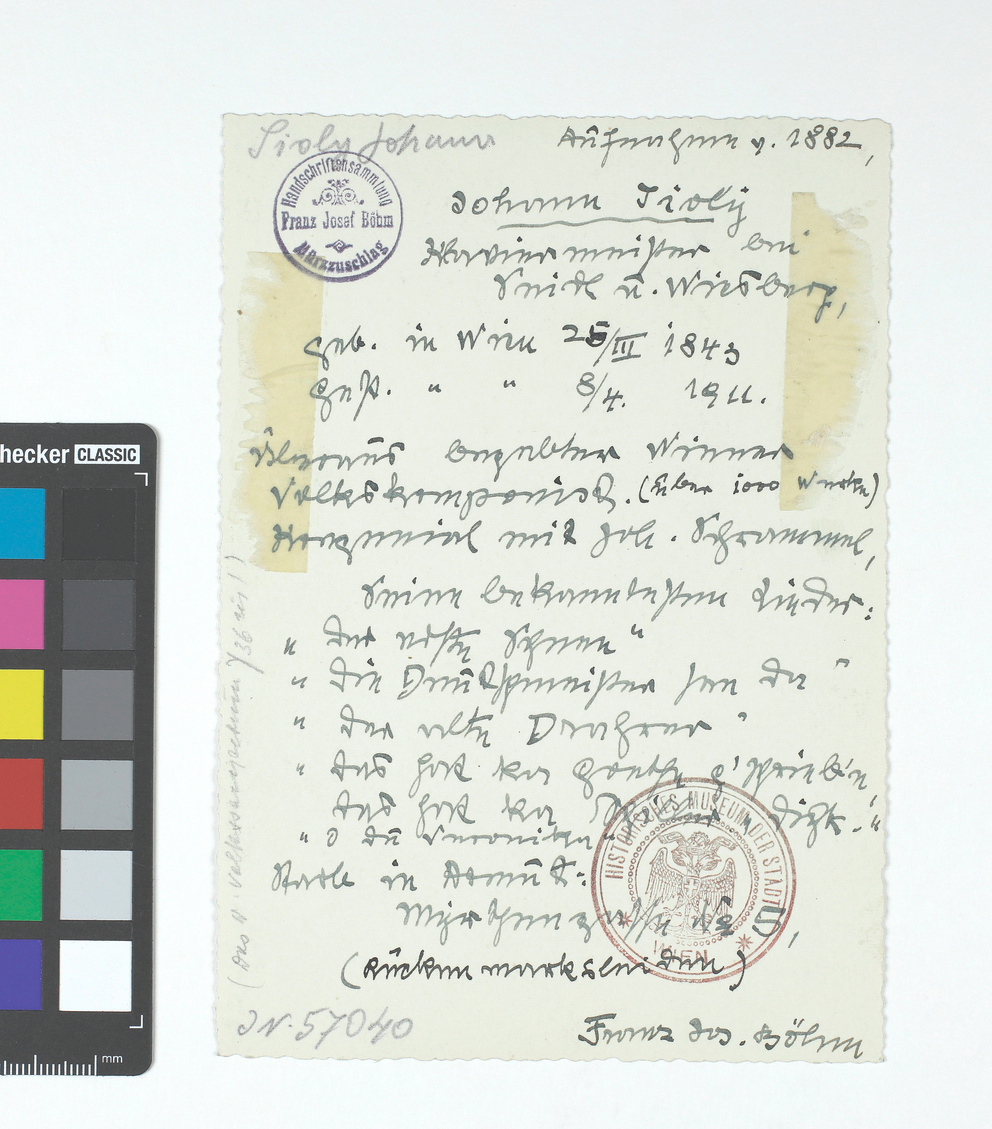 Sioly Johann
Aufnahme v. 1882,
Handschriftensammlung
Franz Josef Böhm
Mürzzuschlag
Johann Sioly
Klaviermeister bei
Seidl u. Wiesberg,
geb. in Wien 25/III 1843
gest. " " 8/4. 1911.
Überaus begabter Wiener
Volkskomponist. (über 1000 Werke)
Kongenial mit Joh. Schrammel,
Seine bekanntesten Lieder:
" Der erste Schnee "
" Die Deutschmeister san da "
" Der alte Drahrer "
" Das hat ka Goethe g'schrieb'n,
das hat ka Schiller dicht. "
" O du Veronika "
Starb in Armut:
Myrthengasse Nr 5,
(Rückenmarksleiden)
HISTORISCHES MUSEUM DER STADT
WIEN
JN. 57040
Franz Jos. Böhm
hecker CLASSIC
mm